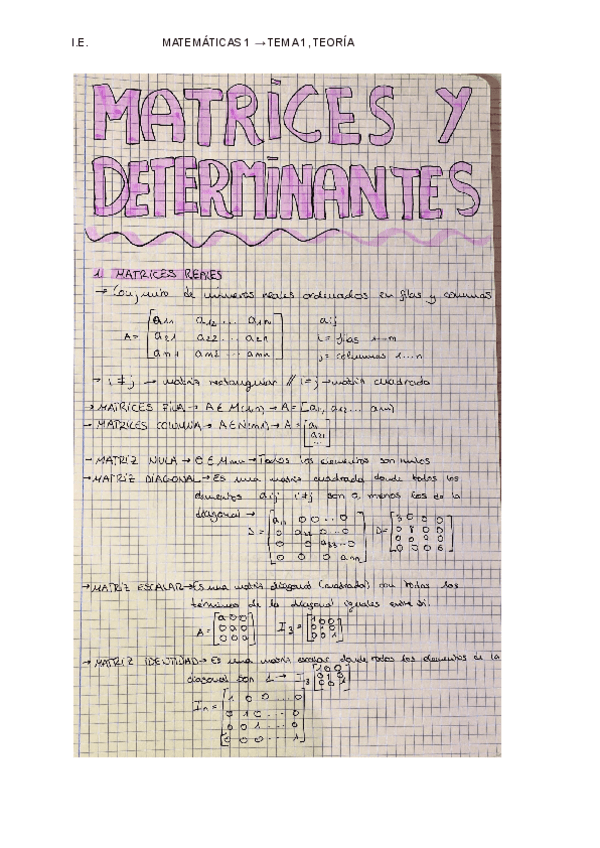 I.E. MATEMÁTICAS 1 → TEMA 1, TEORÍA
MATRICES Y
DETERMINANTES
1. MATRICES REALES
→ Conjunto de números reales ordenados en filas y columnas
A= [a11 a12 ... a1n
a21 a22 ... a2n
am1 am2 ... amn]
aij
i= filas 1...n
j= columnas 1...n
→ i≠j → matriz rectangular // i=j → matriz cuadrada
→ MATRICES FILA → A∈M(1,n) → A= [a11, a12 ... a1n]
→ MATRICES COLUMNA → A∈M(m,1) → A= [a11
a21
...]
→ MATRIZ NULA → Θ∈Mmxn → Todos los elementos son nulos
→ MATRIZ DIAGONAL → Es una matriz cuadrada donde todos los
elementos aij i≠j son 0, menos los de la
diagonal →
D= [a11 0 0 ... 0
0 a22 0 ... 0
0 0 a33 ... 0
0 0 0 ann]
D= [3 0 0 0
0 8 0 0
0 0 9 0
0 0 0 6]
→ MATRIZ ESCALAR → Es una matriz diagonal (cuadrada) con todos los
términos de la diagonal iguales entre sí.
A= [a 0 0
0 0 0
0 0 0]
I3= [1 0 0
0 1 0
0 0 1]
→ MATRIZ IDENTIDAD → Es una matriz escalar donde todos los elementos de la
diagonal son 1 → I3 [1 0 0
0 1 0
0 0 1]
In= [1 0 0 ... 0
0 1 0 ... 0
0 0 1 ... 0
0 0 0 ... 1]